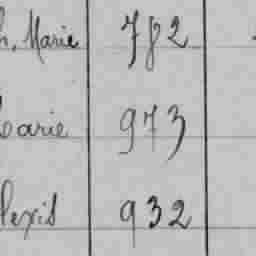 h. Marie 782
Marie 973
lexis 932